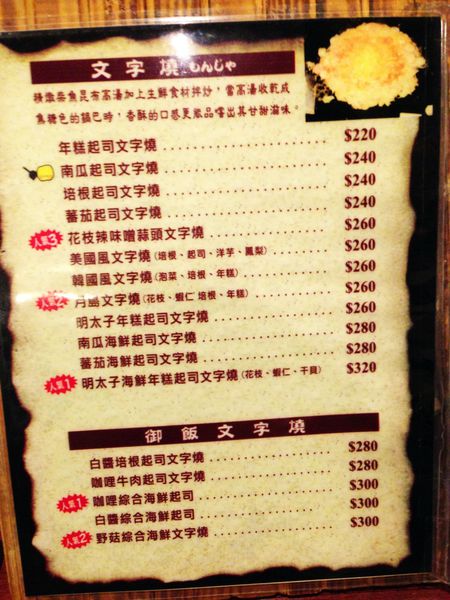 文字燒 もんじゃ
精燉柴魚昆布高湯加上生鮮食材拌炒，當高湯收乾成
焦糖色的鍋巴時，香酥的口感更能品嚐出其甘甜滋味。
年糕起司文字燒 $220
南瓜起司文字燒 $240
培根起司文字燒 $240
蕃茄起司文字燒 $240
人氣3 花枝辣味噌蒜頭文字燒 $260
美國風文字燒(培根、起司、洋芋、鳳梨) $260
韓國風文字燒(泡菜、培根、年糕) $260
人氣2 月島文字燒(花枝、蝦仁 培根、年糕) $260
明太子年糕起司文字燒 $260
南瓜海鮮起司文字燒 $280
蕃茄海鮮起司文字燒 $280
人氣1 明太子海鮮年糕起司文字燒(花枝、蝦仁、干貝) $320
御飯文字燒
白醬培根起司文字燒 $280
咖哩牛肉起司文字燒 $280
人氣1 咖哩綜合海鮮起司 $300
白醬綜合海鮮起司 $300
人氣2 野菇綜合海鮮文字燒 $300